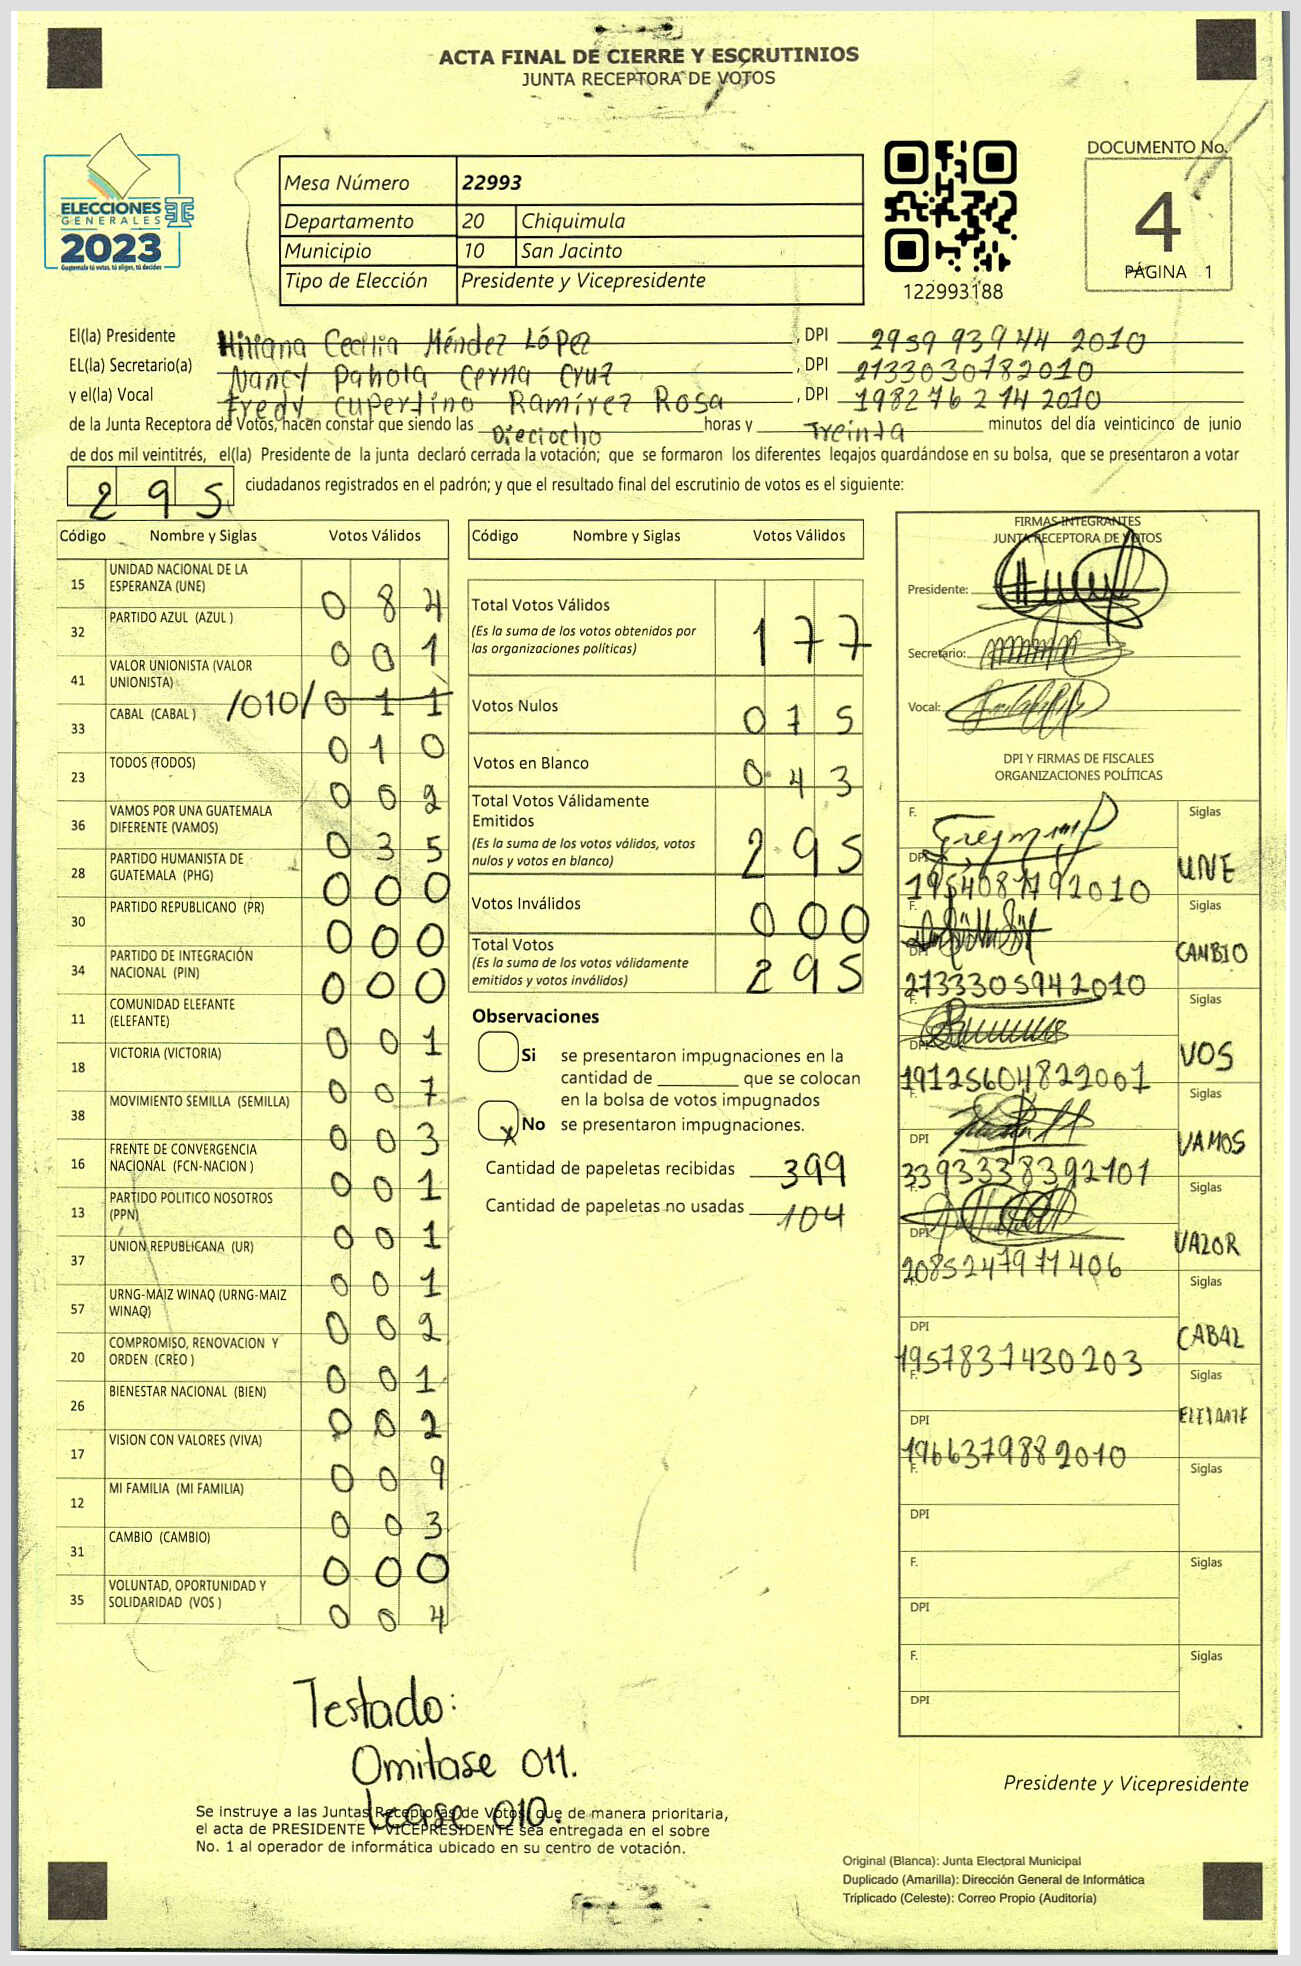 ACTA FINAL DE CIERRE Y ESCRUTINIOS
JUNTA RECEPTORA DE VOTOS
ELECCIONES
GENERALES
2023
Guatemala tú votas, tú eliges, tú decides
Mesa Número 22993
Departamento 20 Chiquimula
Municipio 10 San Jacinto
Tipo de Elección Presidente y Vicepresidente
122993188
DOCUMENTO No.
4
PÁGINA 1
El(la) Presidente Hiliana Cecilia Méndez López, DPI 2959 93944 2010
EL(la) Secretario(a) Nancy Pahola Cerna Cruz, DPI 2133030782010
y el(la) Vocal Fredy Cupertino Ramírez Rosa, DPI 198276214 2010
de la Junta Receptora de Votos, hacen constar que siendo las Dieciocho horas y Treinta minutos del día veinticinco de junio
de dos mil veintitrés, el(la) Presidente de la junta declaró cerrada la votación; que se formaron los diferentes legajos guardándose en su bolsa, que se presentaron a votar
295 ciudadanos registrados en el padrón; y que el resultado final del escrutinio de votos es el siguiente:
Código Nombre y Siglas Votos Válidos
15 UNIDAD NACIONAL DE LA ESPERANZA (UNE) 0 8 4
32 PARTIDO AZUL (AZUL ) 0 0 1
41 VALOR UNIONISTA (VALOR UNIONISTA) /010/ 0 1 1
33 CABAL (CABAL ) 0 1 0
23 TODOS (TODOS) 0 0 2
36 VAMOS POR UNA GUATEMALA DIFERENTE (VAMOS) 0 3 5
28 PARTIDO HUMANISTA DE GUATEMALA (PHG) 0 0 0
30 PARTIDO REPUBLICANO (PR) 0 0 0
34 PARTIDO DE INTEGRACIÓN NACIONAL (PIN) 0 0 0
11 COMUNIDAD ELEFANTE (ELEFANTE) 0 0 1
18 VICTORIA (VICTORIA) 0 0 7
38 MOVIMIENTO SEMILLA (SEMILLA) 0 0 3
16 FRENTE DE CONVERGENCIA NACIONAL (FCN-NACION ) 0 0 1
13 PARTIDO POLITICO NOSOTROS (PPN) 0 0 1
37 UNION REPUBLICANA (UR) 0 0 1
57 URNG-MAIZ WINAQ (URNG-MAIZ WINAQ) 0 0 2
20 COMPROMISO, RENOVACION Y ORDEN (CREO ) 0 0 1
26 BIENESTAR NACIONAL (BIEN) 0 0 2
17 VISION CON VALORES (VIVA) 0 0 9
12 MI FAMILIA (MI FAMILIA) 0 0 3
31 CAMBIO (CAMBIO) 0 0 0
35 VOLUNTAD, OPORTUNIDAD Y SOLIDARIDAD (VOS ) 0 0 4
Código Nombre y Siglas Votos Válidos
Total Votos Válidos 1 7 7
(Es la suma de los votos obtenidos por
las organizaciones políticas)
Votos Nulos 0 7 5
Votos en Blanco 0 4 3
Total Votos Válidamente
Emitidos 2 9 5
(Es la suma de los votos válidos, votos
nulos y votos en blanco)
Votos Inválidos 0 0 0
Total Votos 2 9 5
(Es la suma de los votos válidamente
emitidos y votos inválidos)
Observaciones
Si se presentaron impugnaciones en la
cantidad de ________ que se colocan
en la bolsa de votos impugnados
x No se presentaron impugnaciones.
Cantidad de papeletas recibidas 399
Cantidad de papeletas no usadas 104
FIRMAS INTEGRANTES
JUNTA RECEPTORA DE VOTOS
Presidente:
Secretario:
Vocal:
DPI Y FIRMAS DE FISCALES
ORGANIZACIONES POLÍTICAS
F. Siglas
DPI 1954087792010 UNE
F. Siglas
DPI 2733305942010 CAMBIO
F. Siglas
DPI 19125604822001 VOS
F. Siglas
DPI 3393338392101 VAMOS
F. Siglas
DPI 2085247971406 VALOR
F. Siglas
DPI 1957837430203 CABAL
F. Siglas
DPI 1966379882010 ELEFANTE
F. Siglas
DPI
F. Siglas
DPI
F. Siglas
DPI
Testado:
Omitase 011.
Lease 010.
Se instruye a las Juntas Receptoras de Votos, que de manera prioritaria,
el acta de PRESIDENTE Y VICEPRESIDENTE sea entregada en el sobre
No. 1 al operador de informática ubicado en su centro de votación.
Presidente y Vicepresidente
Original (Blanca): Junta Electoral Municipal
Duplicado (Amarilla): Dirección General de Informática
Triplicado (Celeste): Correo Propio (Auditoría)